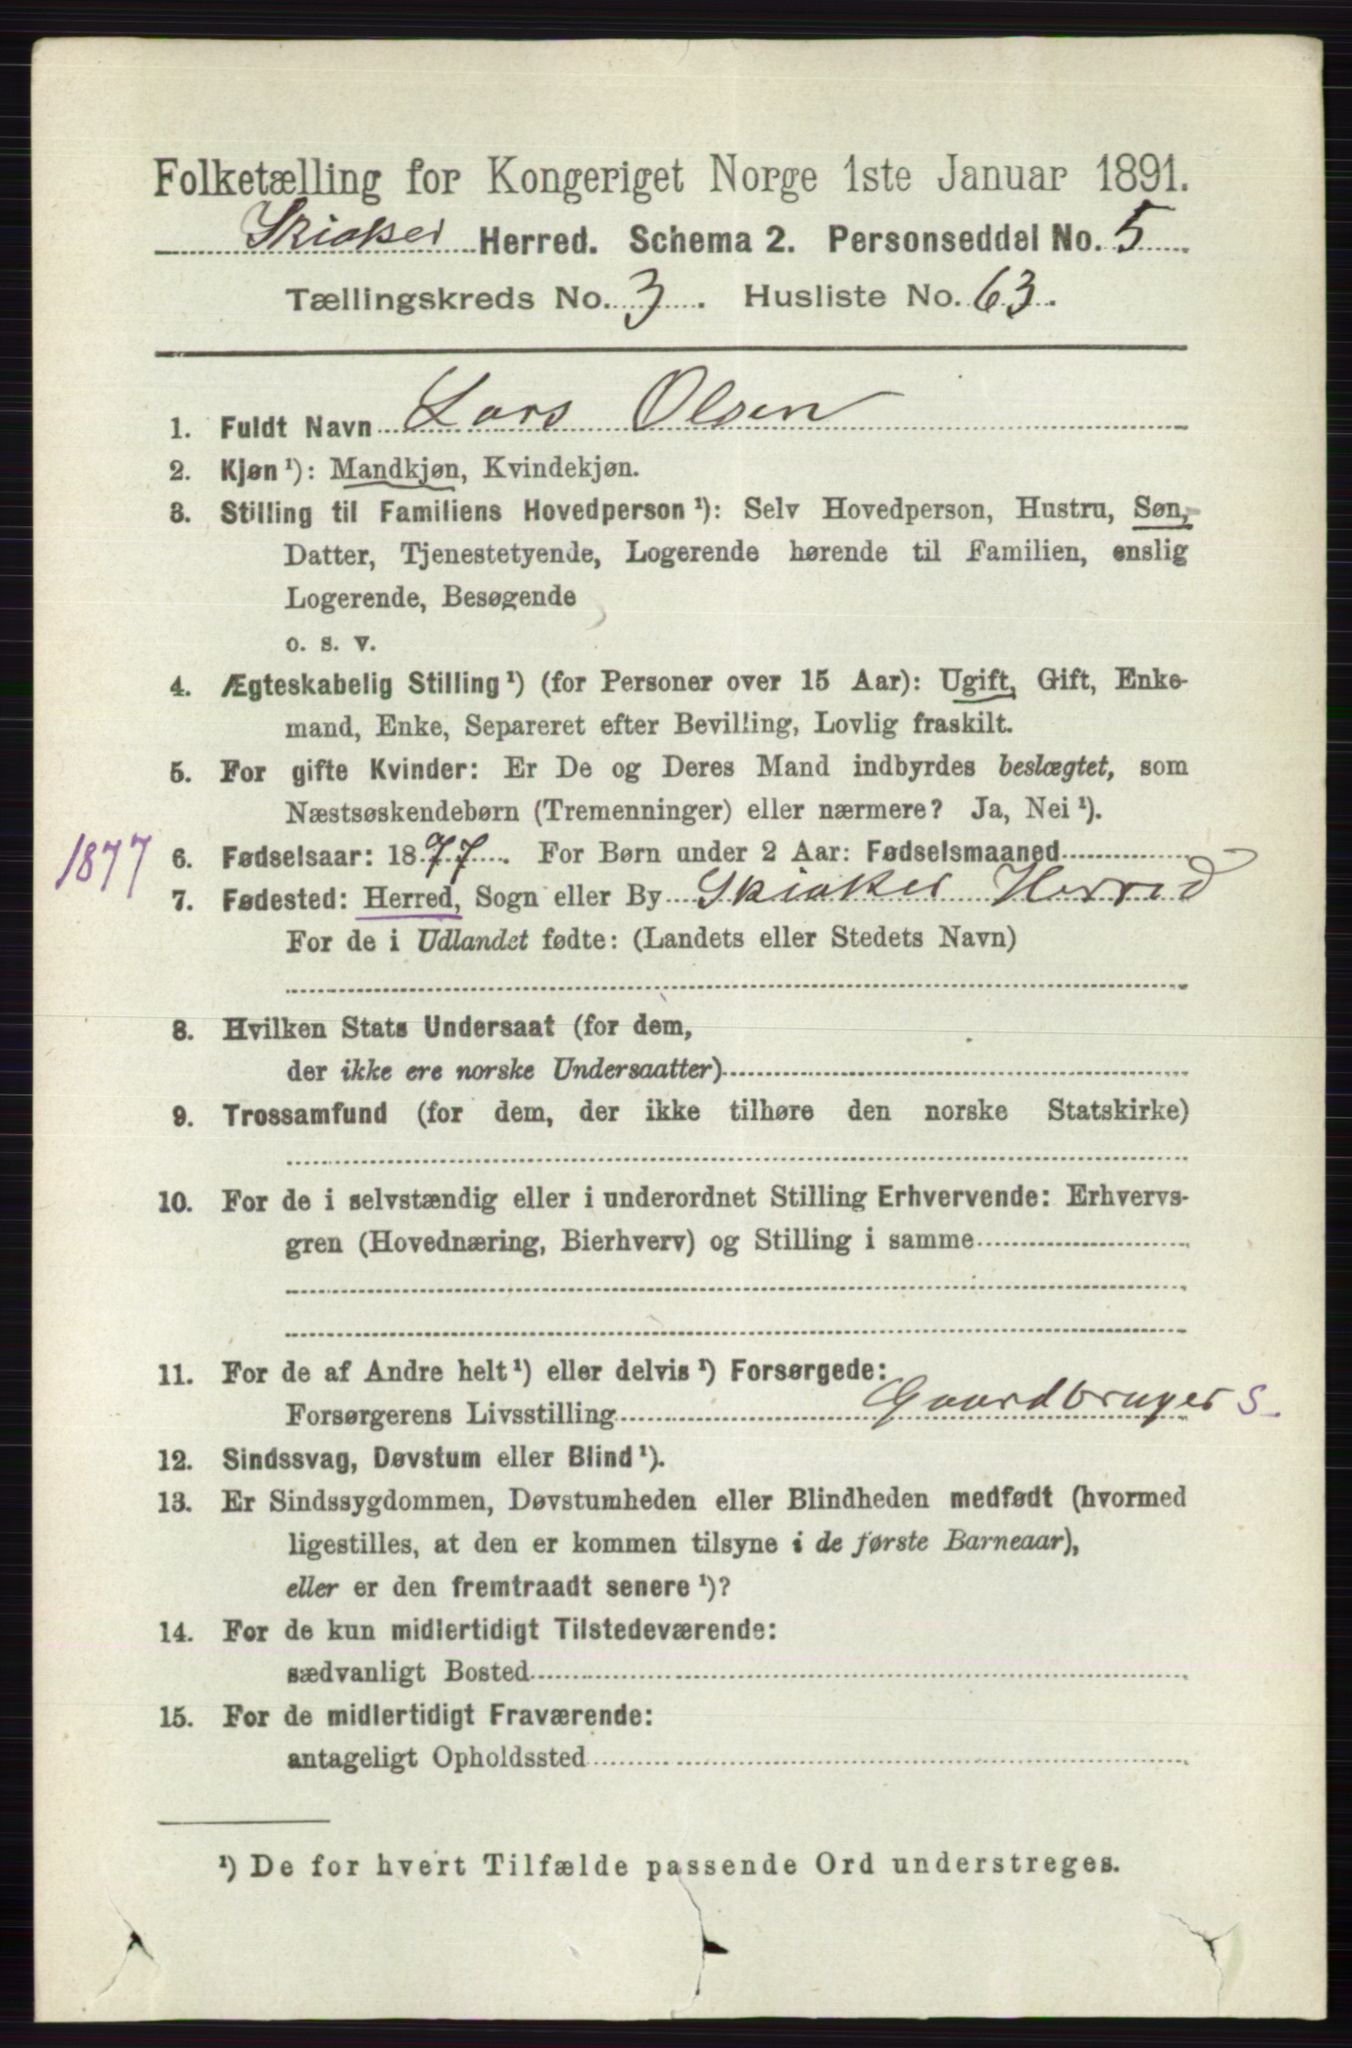 Folketælling for Kongeriget Norge 1ste Januar 1891.
Skiaker Herred. Schema 2. Personseddel No. 5
Tællingskreds No. 3. Husliste No. 63.
1. Fuldt Navn Lars Olsen
2. Kjøn ¹): Mandkjøn, Kvindekjøn.
3. Stilling til Familiens Hovedperson ¹): Selv Hovedperson, Hustru, Søn,
Datter, Tjenestetyende, Logerende hørende til Familien, enslig
Logerende, Besøgende
o. s. v.
4. Ægteskabelig Stilling ¹) (for Personer over 15 Aar): Ugift, Gift, Enke-
mand, Enke, Separeret efter Bevilling, Lovlig fraskilt.
5. For gifte Kvinder: Er De og Deres Mand indbyrdes beslægtet, som
Næstsøskendebørn (Tremenninger) eller nærmere? Ja, Nei ¹).
1877 6. Fødselsaar: 1877. For Børn under 2 Aar: Fødselsmaaned
7. Fødested: Herred, Sogn eller By Skiaker Herred
For de i Udlandet fødte: (Landets eller Stedets Navn)
8. Hvilken Stats Undersaat (for dem,
der ikke ere norske Undersaatter)
9. Trossamfund (for dem, der ikke tilhøre den norske Statskirke)
10. For de i selvstændig eller i underordnet Stilling Erhvervende: Erhvervs-
gren (Hovednæring, Bierhverv) og Stilling i samme
11. For de af Andre helt ¹) eller delvis ¹) Forsørgede:
Forsørgerens Livsstilling Gaardbruger S
12. Sindssvag, Døvstum eller Blind ¹).
13. Er Sindssygdommen, Døvstumheden eller Blindheden medfødt (hvormed
ligestilles, at den er kommen tilsyne i de første Barneaar),
eller er den fremtraadt senere ¹)?
14. For de kun midlertidigt Tilstedeværende:
sædvanligt Bosted
15. For de midlertidigt Fraværende:
antageligt Opholdssted
¹) De for hvert Tilfælde passende Ord understreges.